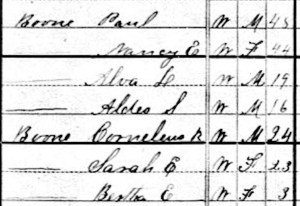 Boone Paul W M 48
—— Nancy E W F 44
—— Alva L W M 19
—— Aldes S W M 16
Boone Cornelius R W M 24
—— Sarah E W F 23
—— Bertha E W F 3